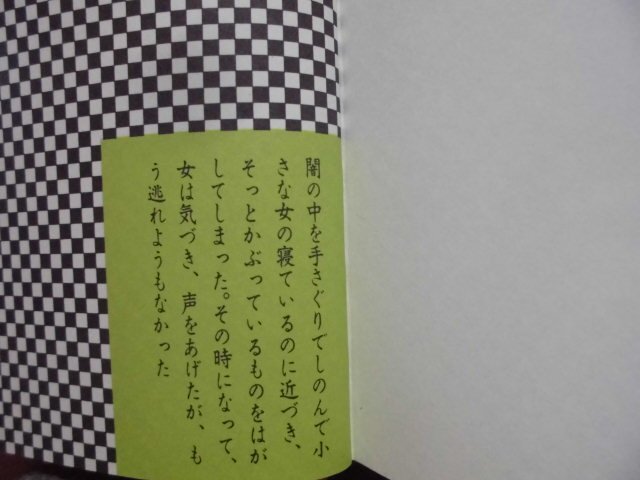 闇の中を手さぐりでしのんで小
さな女の寝ているのに近づき、
そっとかぶっているものをはが
してしまった。その時になって、
女は気づき、声をあげたが、も
う逃れようもなかった